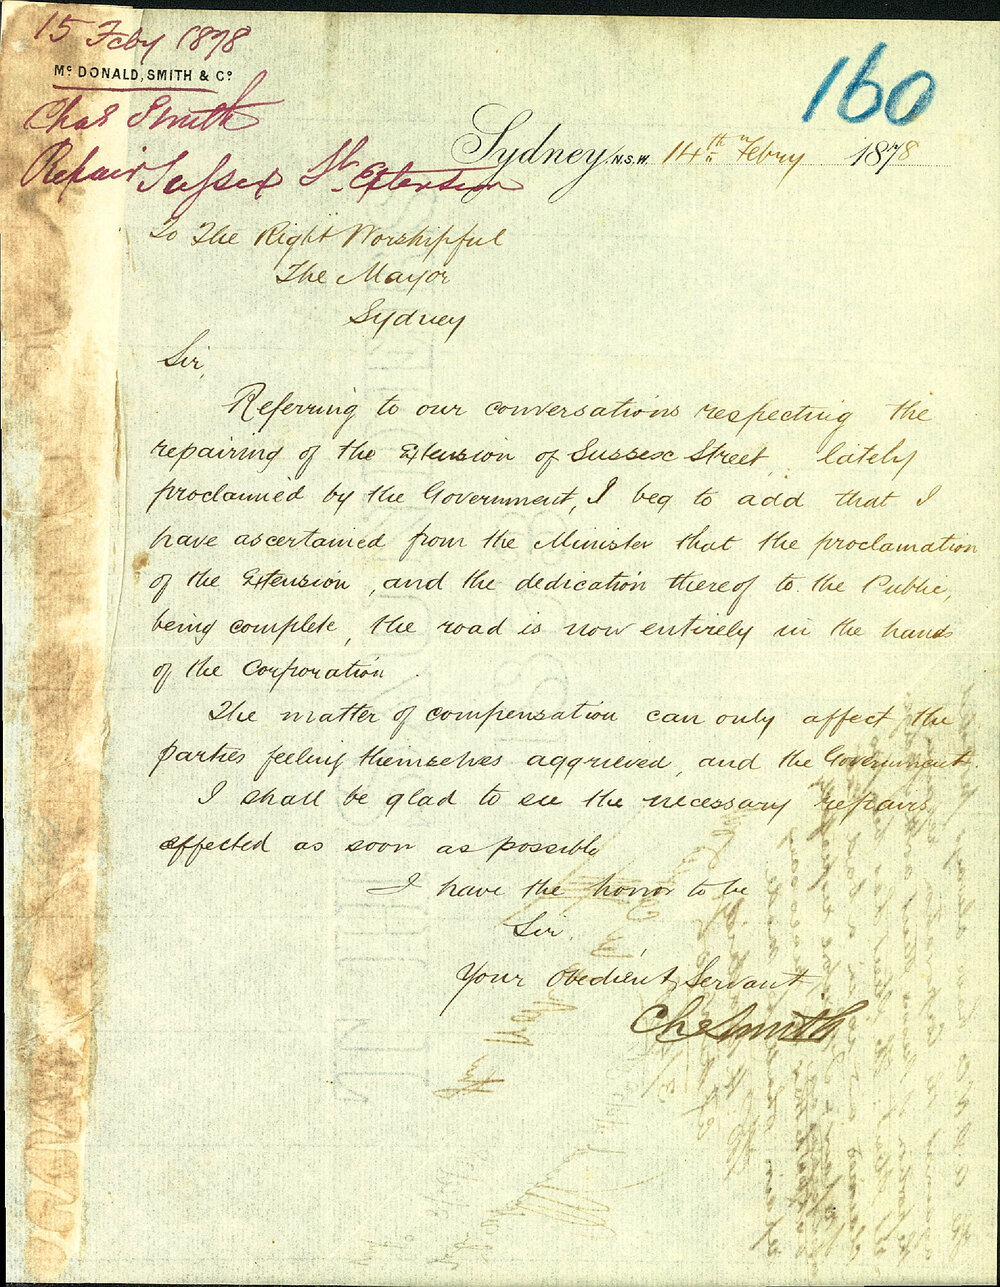 15 Feby 1878
McDONALD, SMITH & Co
Chas Smith
Repair Sussex St. Extension
160
Sydney, N.S.W. 14th Febry 1878
To The Right Worshipful
The Mayor
Sydney
Sir,
Referring to our conversations respecting the
repairing of the Extension of Sussex Street, lately
proclaimed by the Government, I beg to add that I
have ascertained from the Minister that the proclamation
of the Extension, and the dedication thereof to the Public,
being complete, the road is now entirely in the hands
of the Corporation.
The matter of compensation can only affect the
parties feeling themselves aggrieved, and the Government.
I shall be glad to see the necessary repairs
effected as soon as possible
I have the honor to be
Sir,
Your Obedient Servant
Chs Smith